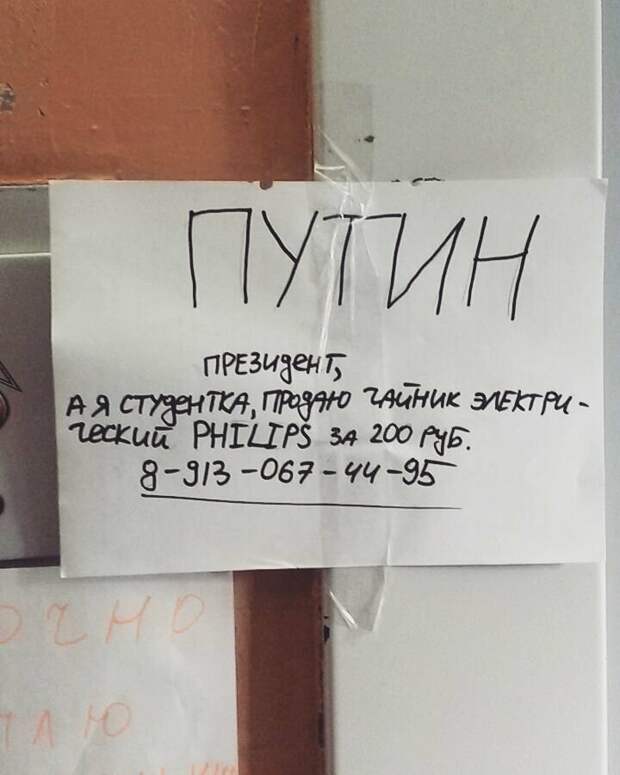 ПУТИН
ПРЕЗИДЕНТ,
А Я СТУДЕНТКА, ПРОДАЮ ЧАЙНИК ЭЛЕКТРИ-
ЧЕСКИЙ PHILIPS ЗА 200 РУБ.
8-913-067-44-95